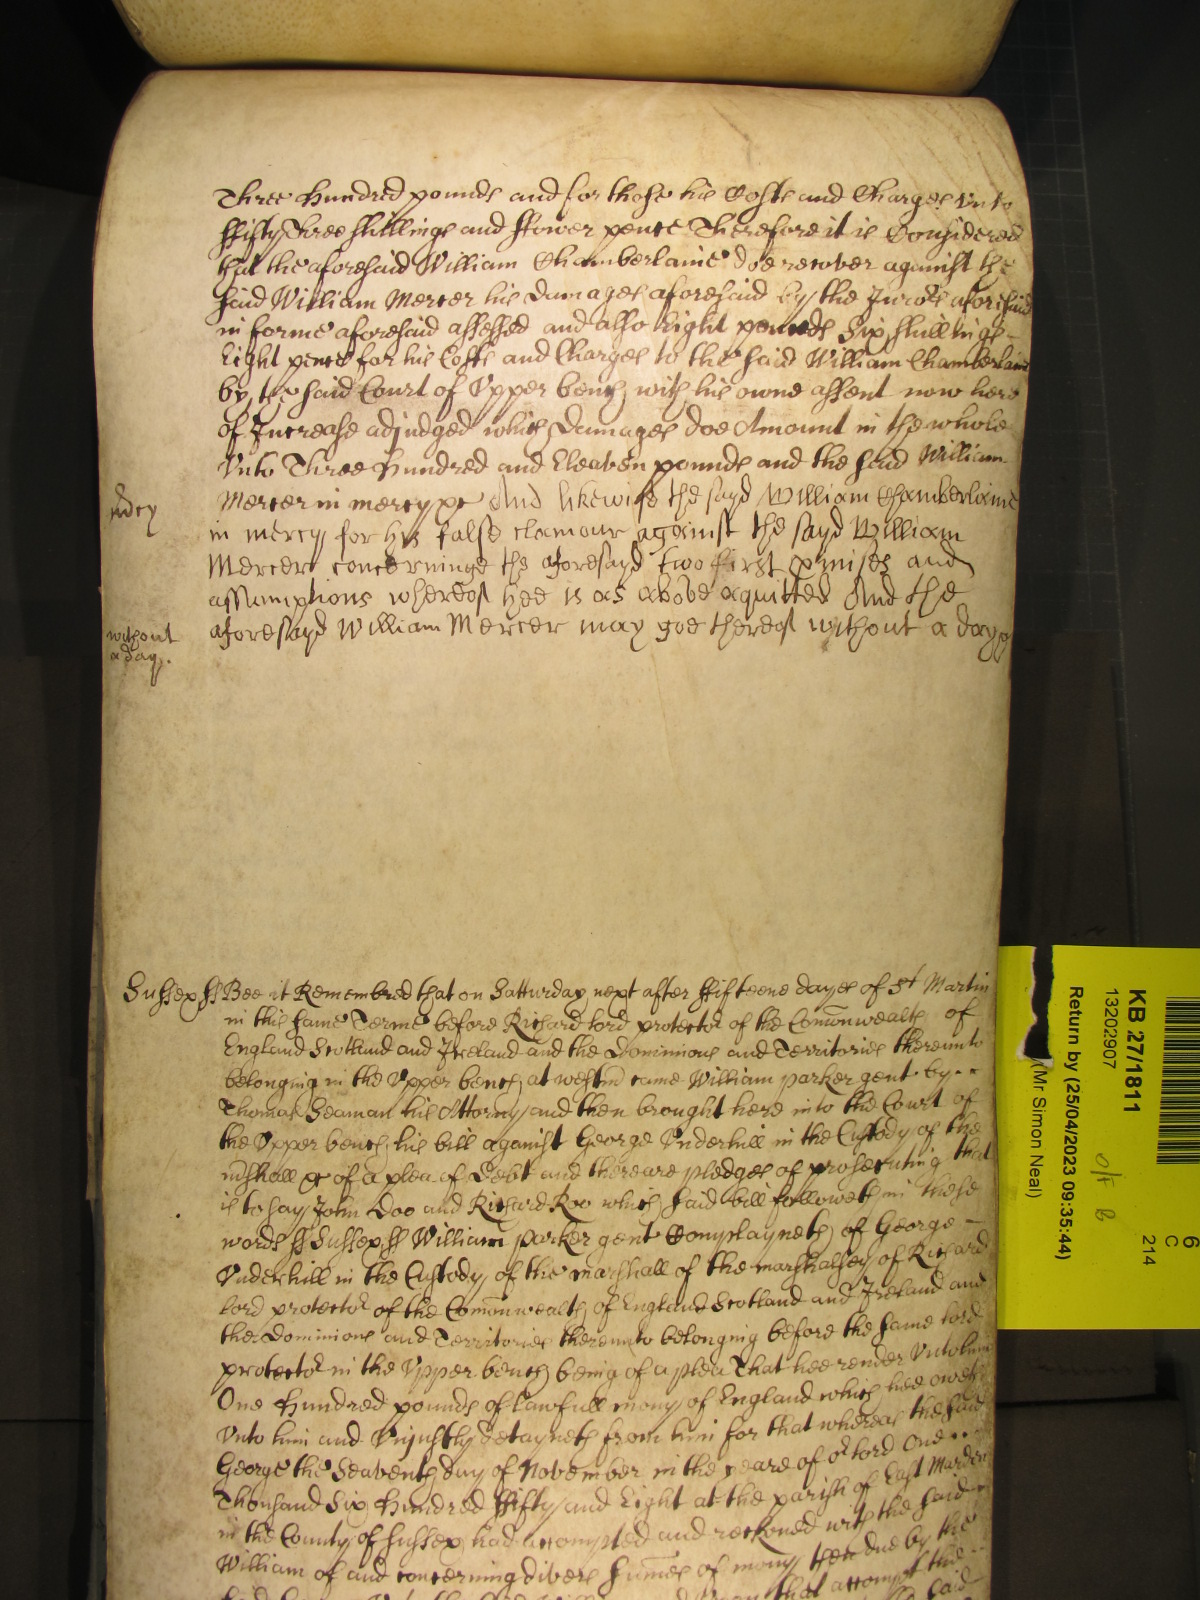 Three Hundred pounds and for those his Costs and Charges unto
ffifty Three shillings and ffower pence Therefore it is Considered
that the aforesaid William Chamberlaine doe recover against the
said William Mercer his damages aforesaid by the Jurors aforesaid
in forme aforesaid assessed and also Eight pounds Six shillings
Eight pence for his Costs and Charges to the said William Chamberlaine
by the said Court of Upper bench with his owne assent now here
of Increase adjudged which Damages doe Amount in the whole
Unto Three Hundred and Eleaven pounds and the said William
mercy
Mercer in mercy &c And likewise the sayd William Chamberlaine
in mercy for his false clamour against the sayd William
Mercer concerninge the aforesayd two first p'mises and
assumptions whereof hee is as above aquitted And the
without
a day.
aforesayd William Mercer may goe thereof without a day &c
Sussex ss Bee it Remembred that on Satturday next after ffifteene dayes of St Martin
in this same Terme before Richard lord protector of the Comonwealth of
England Scotland and Ireland and the Dominions and Territories thereunto
belonging in the Upper bench at westm came William parker gent by
Thomas Seaman his Attorny and then brought here into the Court of
the Upper bench his bill against George Underhill in the Custody of the
m'shall &c of a plea of Debt and there are pledges of prosecuting that
is to say John Doo and Richard Roo which said bill followeth in these
words ss Sussex ss William parker gent Complayneth of George
Underhill in the Custody of the marshall of the marshalsey of Richard
lord protector of the Comonwealth of England Scotland and Ireland and
the Dominions and Territories thereunto belonging before the same lord
protector in the Upper bench being of a plea That hee render Unto him
One Hundred pounds of lawfull mony of England which hee oweth
Unto him and Unjustly detayneth from him for that whereas the said
George the Seaventh day of November in the yeare of or lord One
Thousand Six Hundred ffifty and Eight at the parish of East Marden
in the County of Sussex had accompted and reckoned with the said
William of and concerning divers sumes of mony then due by the
that accompt the
said
KB 27/1811
13202907
Return by (25/04/2023 09:35:44)
(Mr Simon Neal)
6
C
214